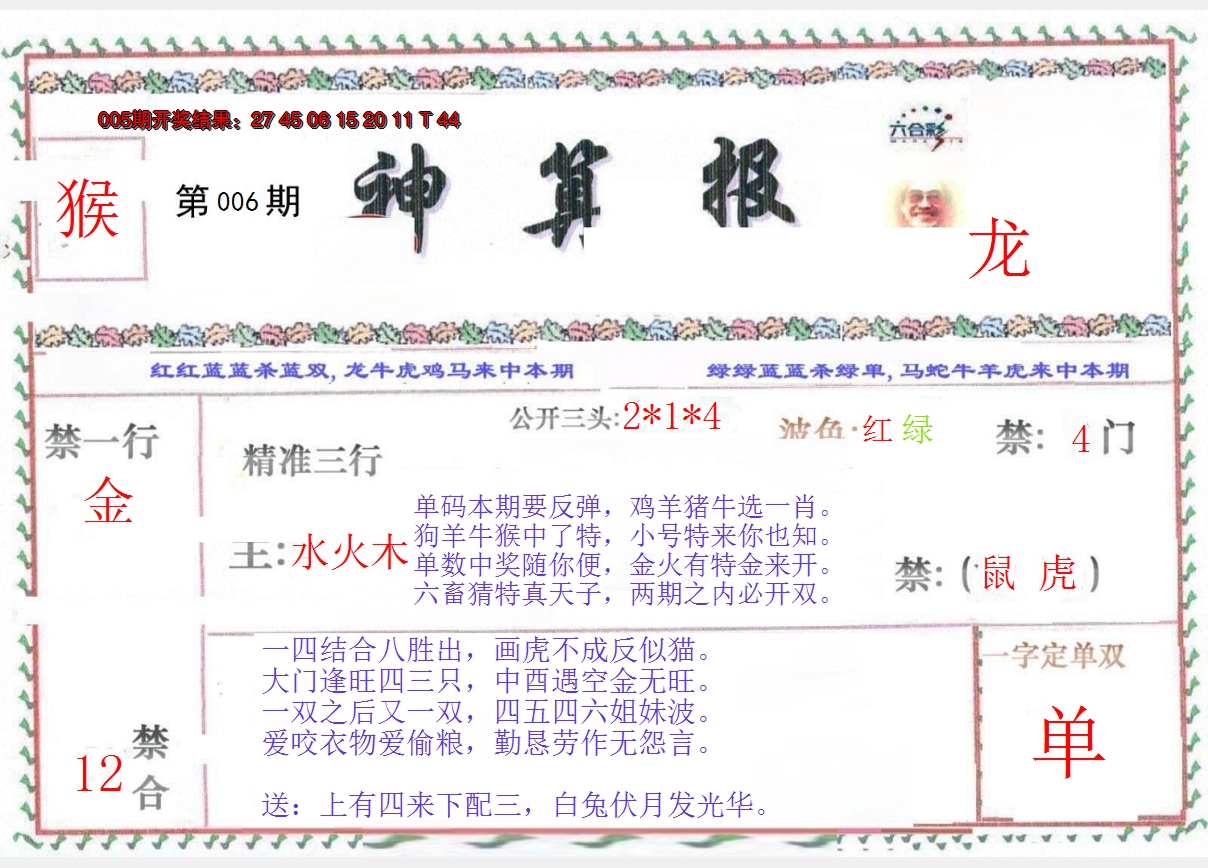 005期开奖结果：27 45 06 15 20 11 T 44
六合彩
神算报
猴
第006期
龙
红红蓝蓝杀蓝双，龙牛虎鸡马来中本期
绿绿蓝蓝杀绿单，马蛇牛羊虎来中本期
禁一行
金
精准三行
公开三头:2*1*4
波色:红 绿
禁: 4门
主:水火木
单码本期要反弹，鸡羊猪牛选一肖。
狗羊牛猴中了特，小号特来你也知。
单数中奖随你便，金火有特金来开。
六畜猜特真天子，两期之内必开双。
禁:(鼠 虎)
一四结合八胜出，画虎不成反似猫。
大门逢旺四三只，中酉遇空金无旺。
一双之后又一双，四五四六姐妹波。
爱咬衣物爱偷粮，勤恳劳作无怨言。
送：上有四来下配三，白兔伏月发光华。
12
禁合
一字定单双
单